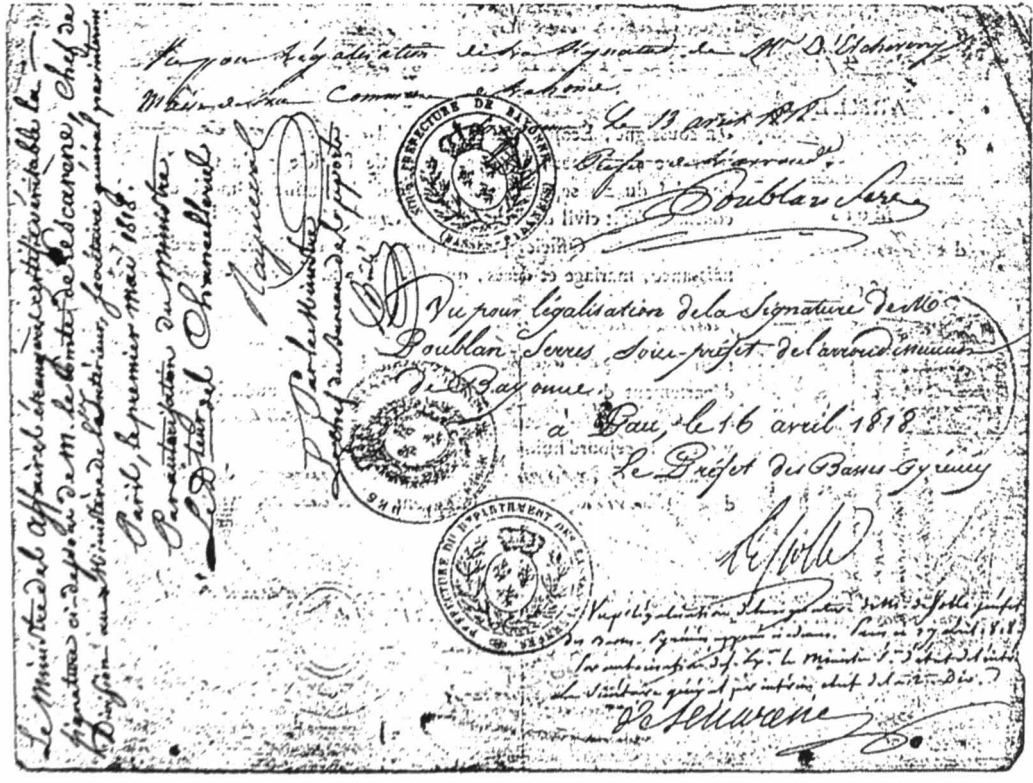 Vu pour légalisation de la Signature de Mr D. Etcheverry
Maire de la Commune
Le 13 avril 1818
Poublan Serres
SOUS-PREFECTURE DE BAYONNE
(BASSES-PYRENEES)
civil
naissance, mariage et décès,
Vu pour légalisation de la Signature de M
Poublan-Serres, sous-préfet de l'arrondissement
de Bayonne.
à Pau, le 16 avril 1818
Le Préfet des Basses Pyrénées
PREFECTURE DU DEPARTMENT DES BASSES PYRENEES
Vu pr légalisation de la signature de Mr préfet
des Basses Pyrénées Paris ce 27 avril 1818
Par autorisation de S. Ex. le Ministre S. d'état de l'intr
Le Secrétaire général par intérim chef de la Div.
de Lescarene
Le Ministre des affaires étrangères certifie véritable la
signature ci dessus de M. le Comte de Lescarène, Chef de
Division au Ministère de l'intérieur, secrétaire général par intérim
Paris, le premier mai 1818.
Par autorisation du Ministre
Le Dteur des Chancelleries
Par le Ministre
Le chef du bureau des passeports